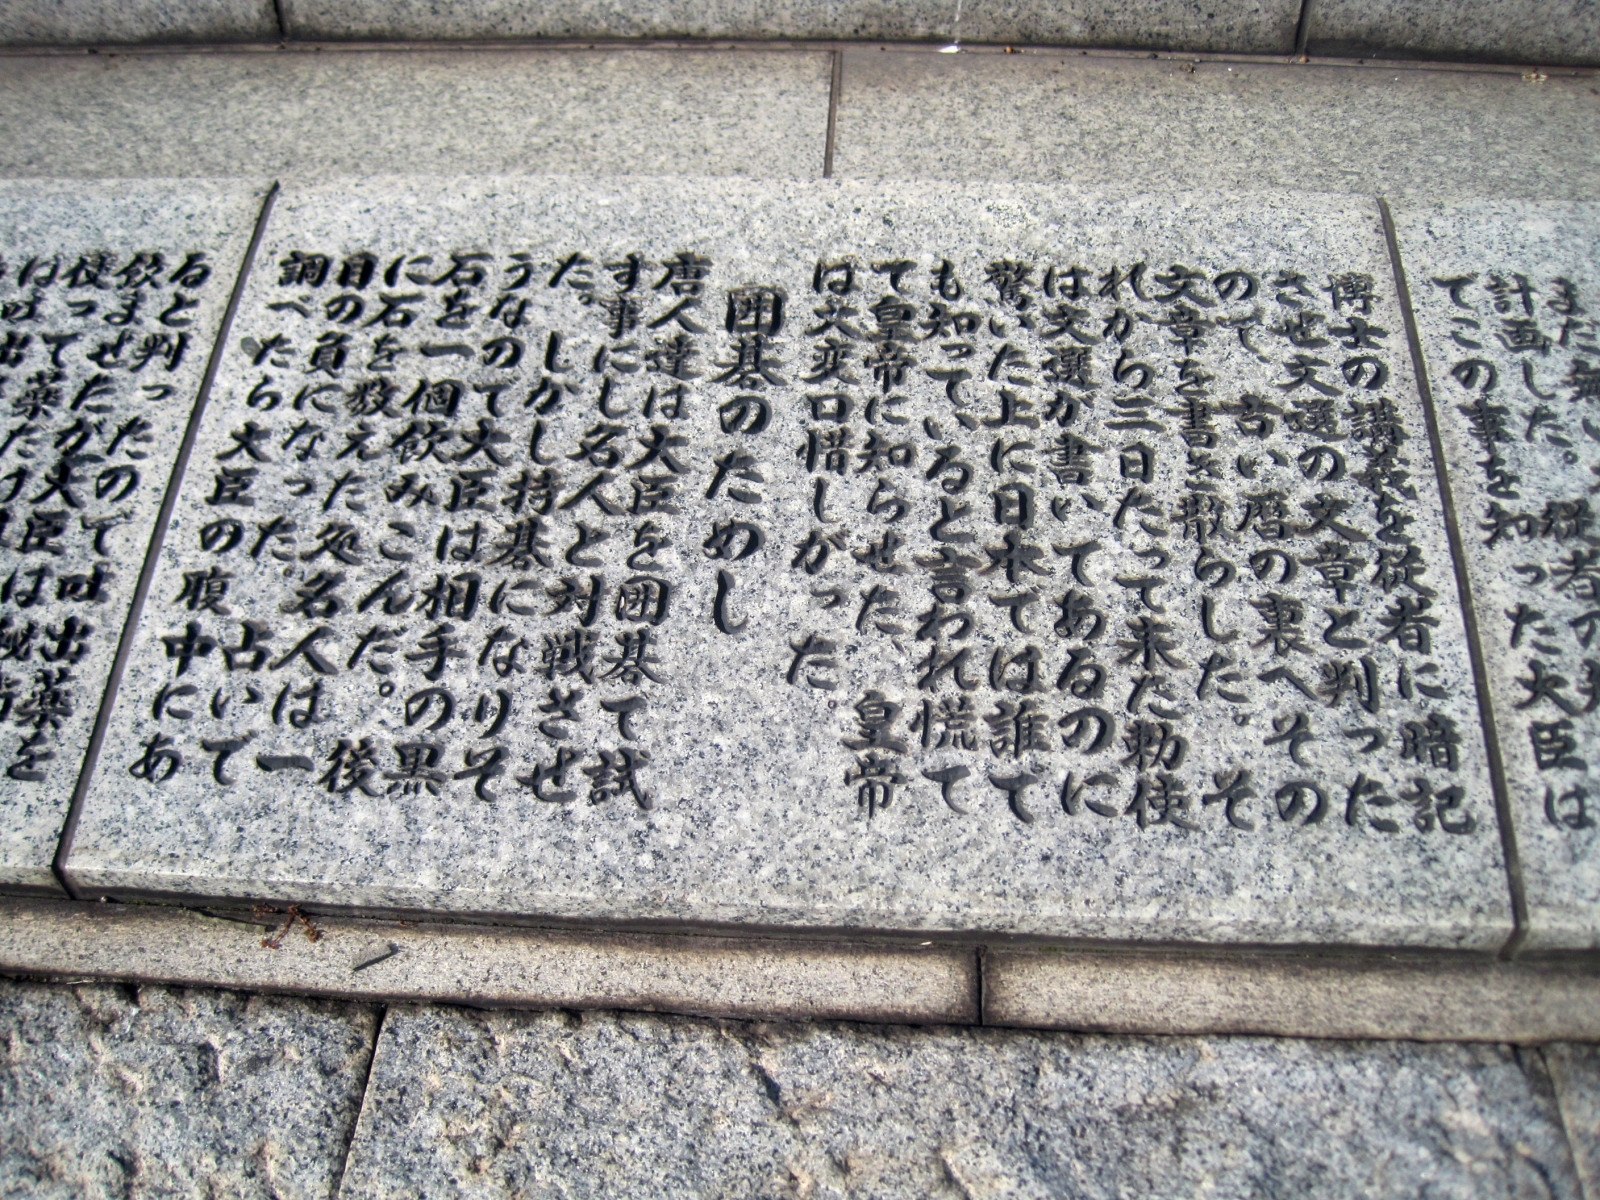 まだ無い
計画した。 従者の夫
でこの事を知った大臣は
博士の講義を従者に暗記
させ文選の文章と判った
ので 古い暦の裏へその
文章を書き散らした。 そ
れから三日たって来た勅使
は文選が書いてあるのに
驚いた上に日本では誰て
も知っていると言われ慌て
て皇帝に知らせた、 皇帝
は大変口惜しがった。
囲碁のためし
唐人達は大臣を囲碁て試
す事にし名人と対戦させ
た。 しかし持碁になりそ
うなので大臣は相手の黒
石を一個飲みこんだ。 後
に石を数えた処名人は一
目の負になった。 占いで
調べたら大臣の腹中にあ
ると判ったので吐出薬を
飲ませたが大臣は
使って薬